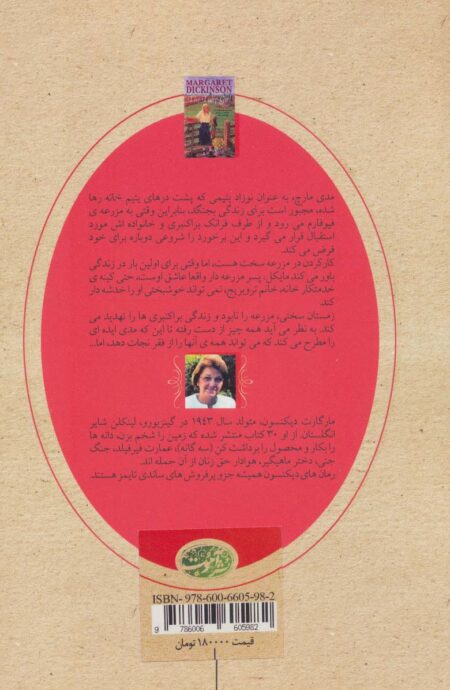 MARGARET
DICKINSON
مدی مارچ، به عنوان نوزاد یتیمی که پشت درهای یتیم خانه رها
شده، مجبور است برای زندگی بجنگد، بنابراین وقتی به مزرعه ی
فیوفارم می رود و از طرف فرانک براکنبری و خانواده اش مورد
استقبال قرار می گیرد و این برخورد را شروعی دوباره برای خود
فرض می کند.
کارکردن در مزرعه سخت هست، اما وقتی برای اولین بار در زندگی
باور می کند مایکل، پسر مزرعه دار واقعا عاشق اوست، حتی کینه ی
خدمتکار خانه، خانم ترویریج، نمی تواند خوشبختی او را خدشه دار
کند
زمستان سختی، مزرعه را نابود و زندگی براکنبری ها را تهدید می
کند. به نظر می آید همه چیز از دست رفته تا این که مدی ایده ای
را مطرح می کند که می تواند همه ی آنها را از فقر نجات دهد، اما...
مارگارت دیکنسون، متولد سال ۱۹۴۳ در گینزبورو، لینکلن شایر
انگلستان. از او ۳۰ کتاب منتشر شده که زمین را شخم بزن، دانه ها
را بکار و محصول را برداشت کن (سه گانه)، عمارت فیرفیلد، جنگ
جنی، دختر ماهیگیر، هوادار حق زنان از آن جمله اند.
رمان های دیکنسون همیشه جزو پرفروش های ساندی تایمز هستند.
ISBN- 978-600-6605-98-2
9 786006 605982
قیمت ۱۸۰۰۰۰ تومان